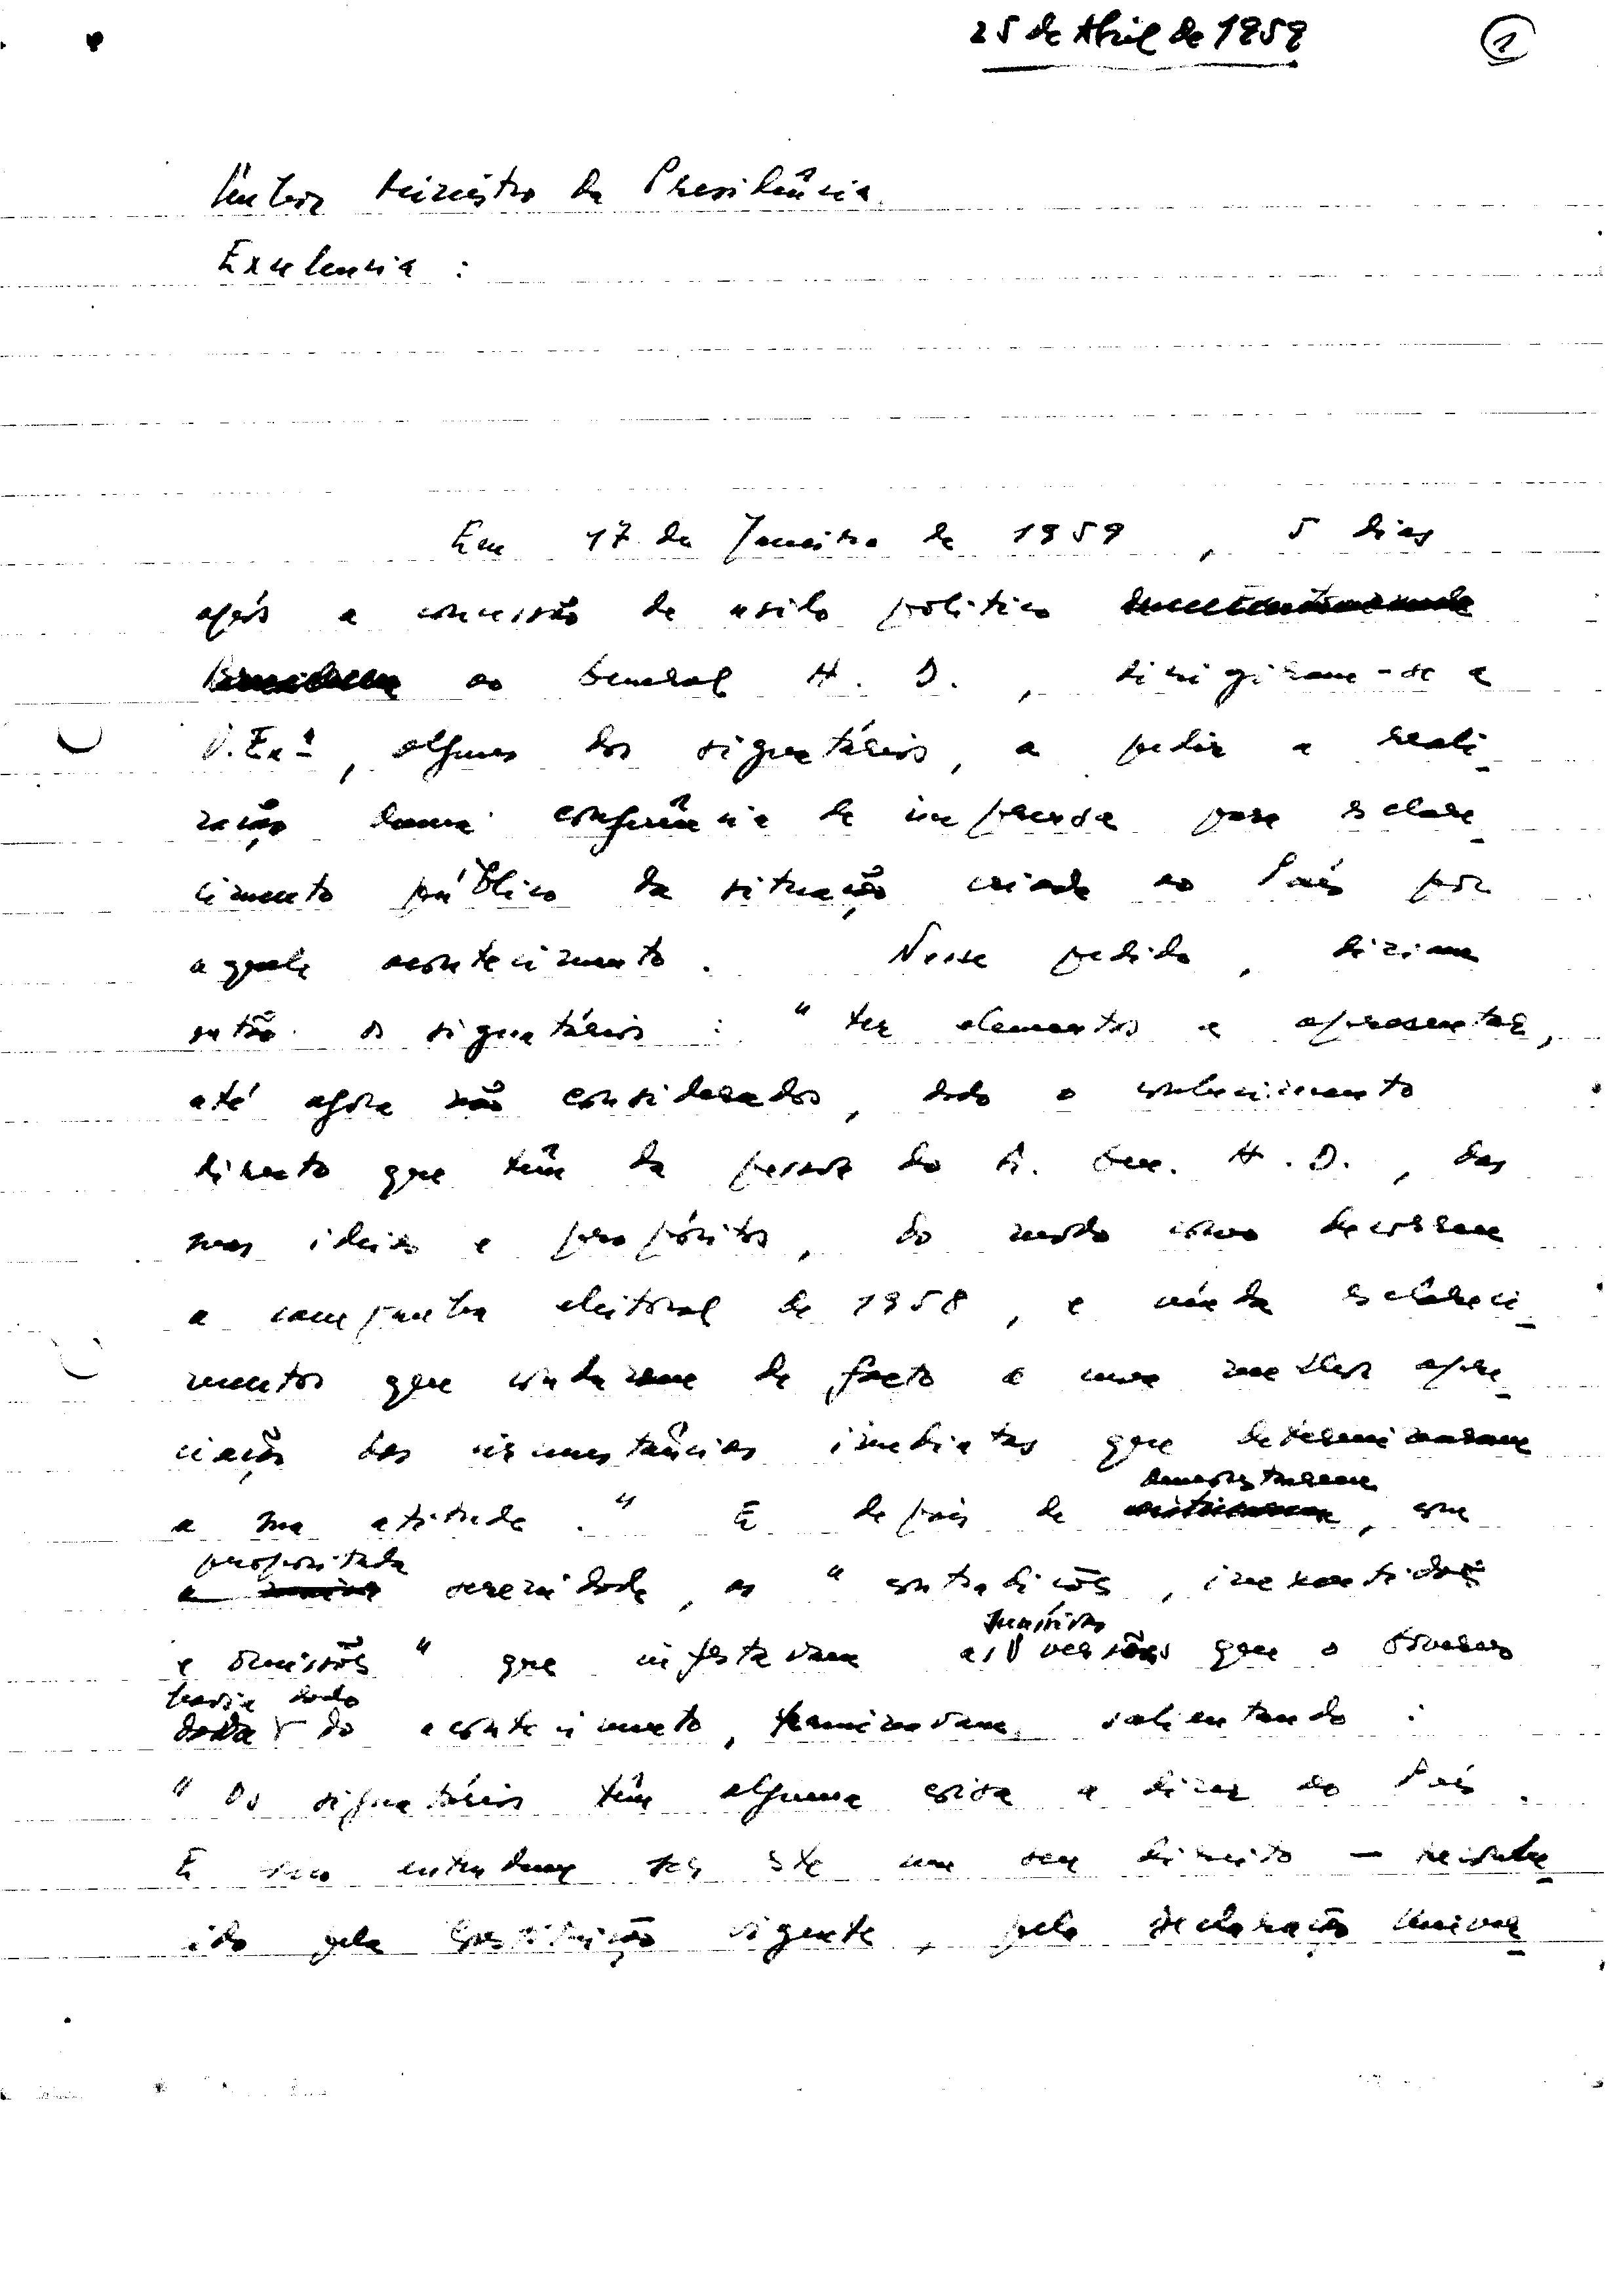 25 de Abril de 1959
1
Senhor Ministro da Presidência.
Excelencia :
Em 17 de Janeiro de 1959 , 5 dias
após a concessão de asilo politico
ao General H. D. , dirigiram-se a
V. Exª, alguns dos signatários, a pedir a reali
zação duma conferência de imprensa para esclare
cimento público da situação criada ao País por
aquele acontecimento . Nesse pedido , diziam
então os signatários : " ter elementos a apresentar,
até agora não considerados, dado o conhecimento
directo que têm da pessoa do Sr. Gen. H. D. , das
suas ideias e propósitos, do modo como decorreu
a campanha eleitoral de 1958 , e ainda esclareci
mentos que conduzem de facto a uma melhor apre
ciação das circunstâncias imediatas que determinaram
a sua atitude ." E depois de demonstrarem , com
propositada serenidade, as " contradições , inexactidões
e omissões " que infestavam as versões que o Governo
havia dado do acontecimento, terminavam, salientando :
" Os signatários têm alguma coisa a dizer ao País .
E entendem ser este um seu direito — reconhe
cido pela Constituição vigente , pela Declaração Univer